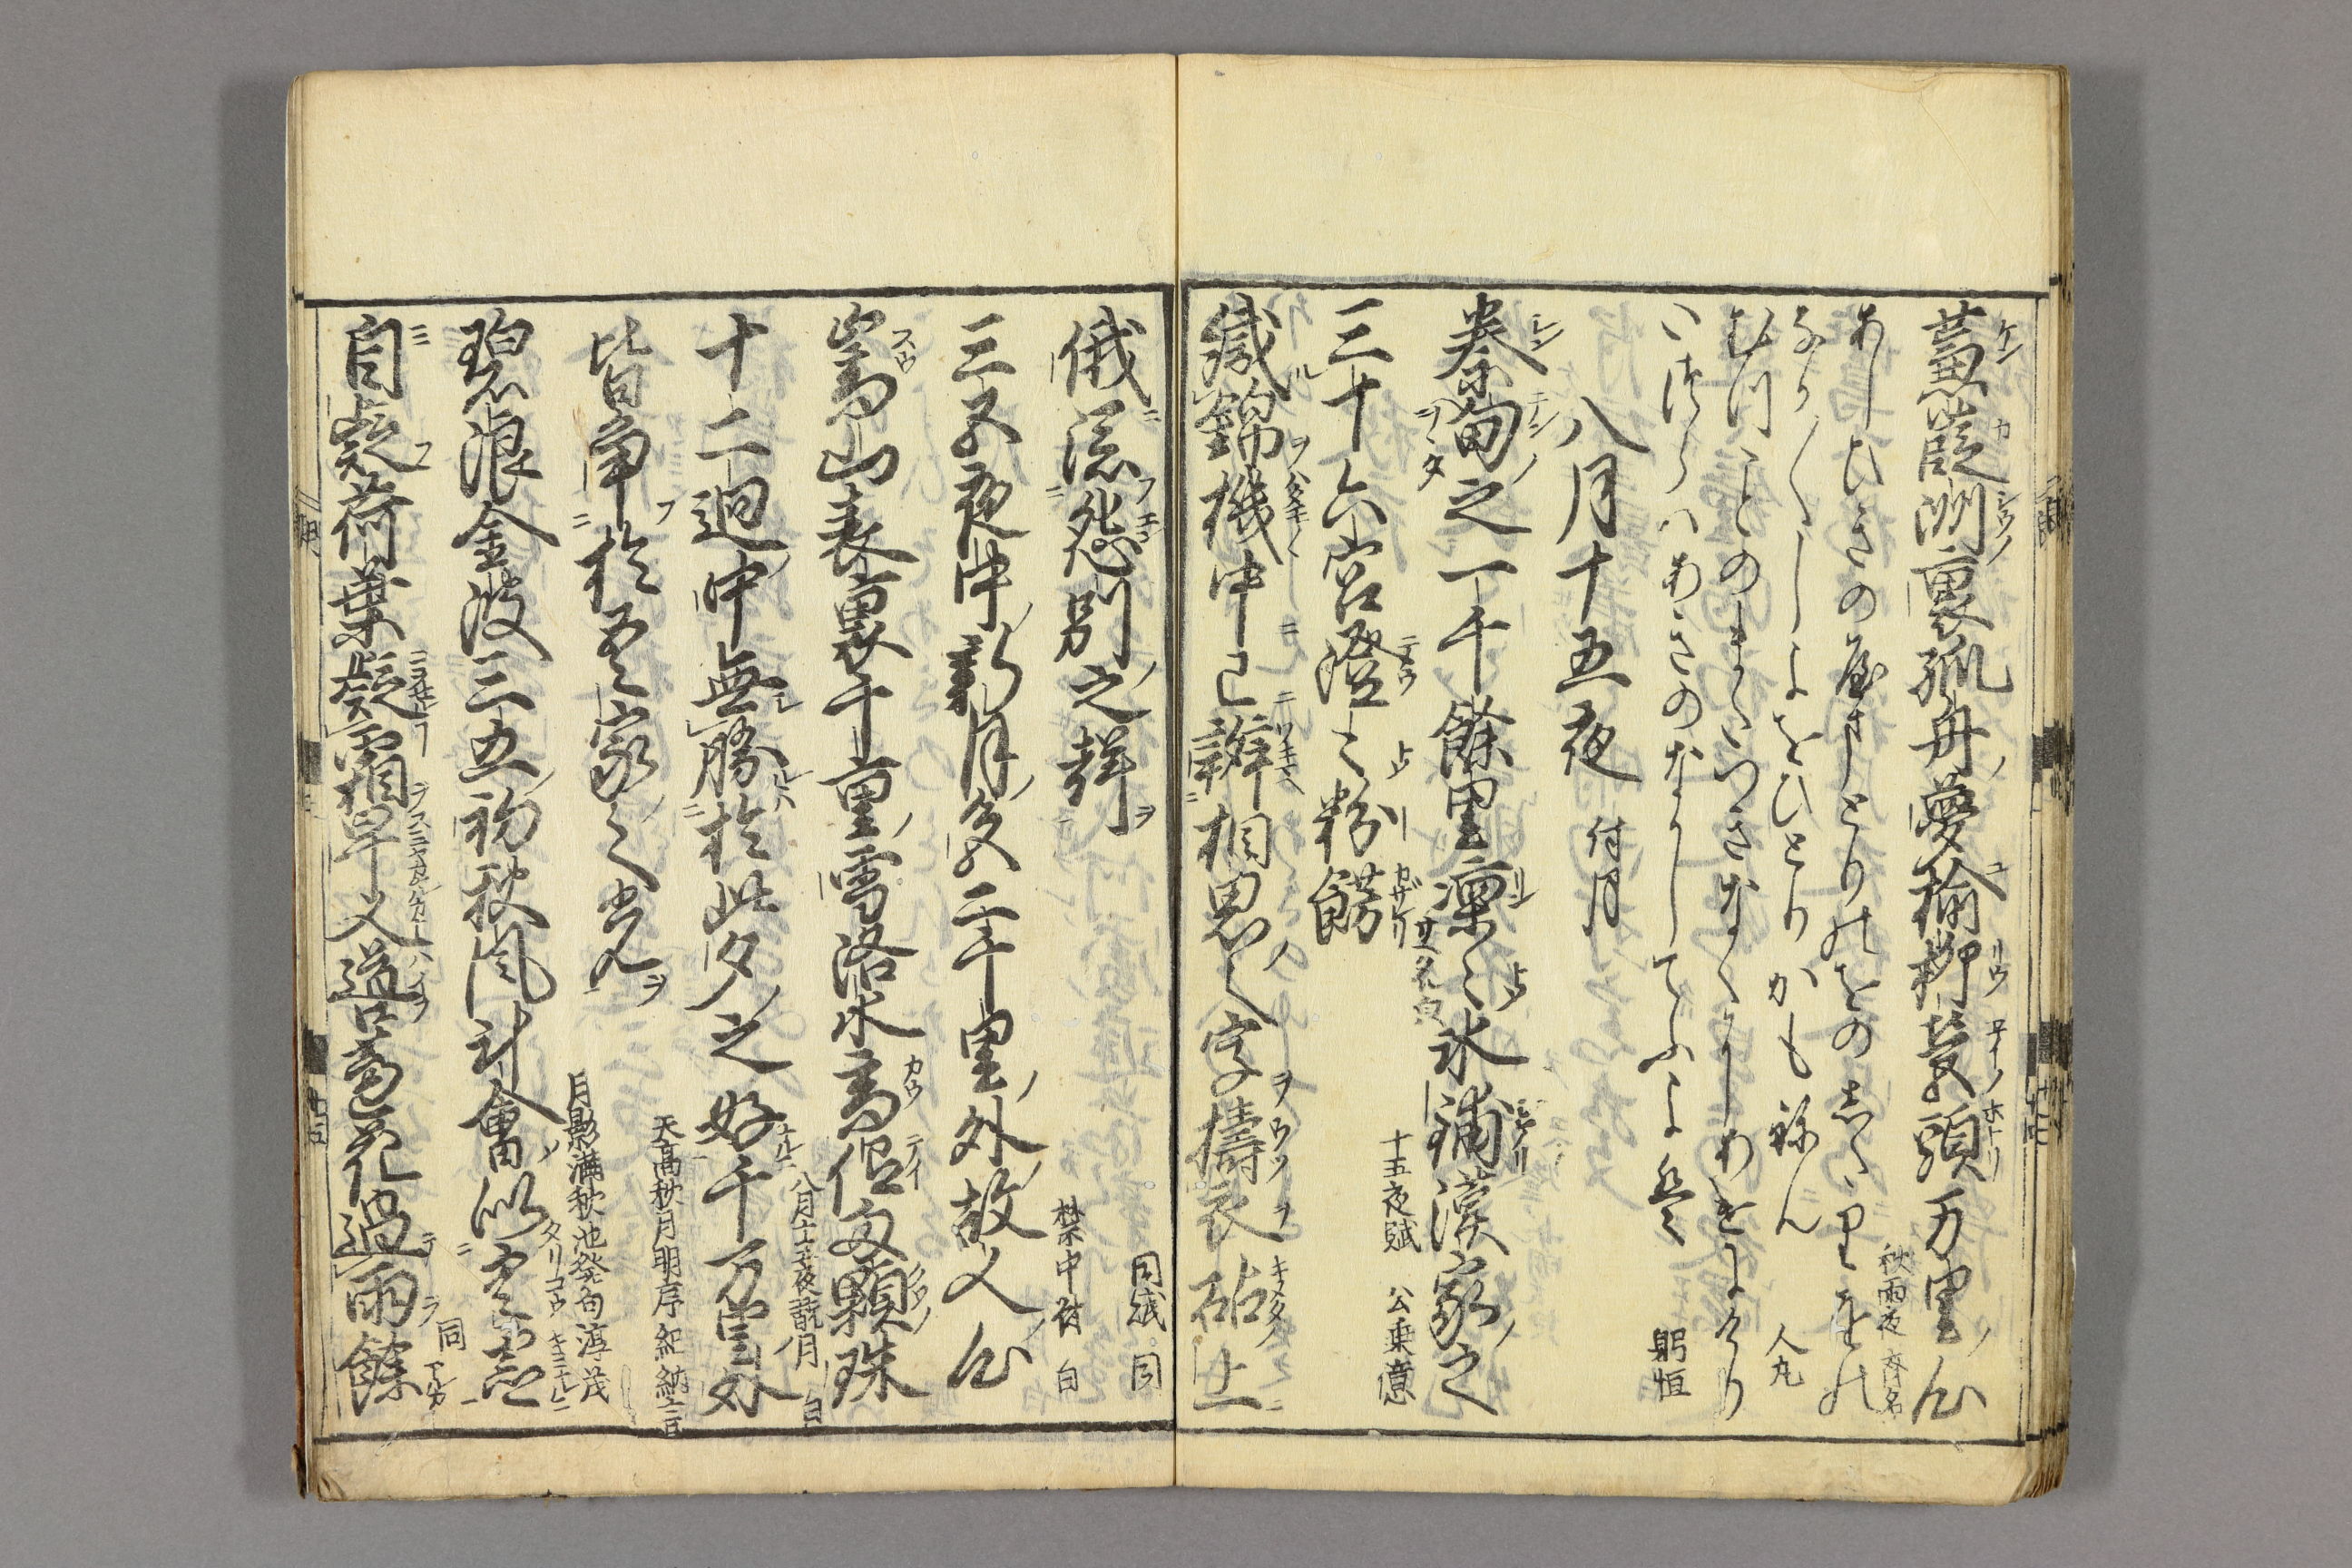 蒹葭洲裏孤舟夢榆柳営頭万里心
秋雨夜 斉名
あしひきの山とりのをのしたりをの
なか〱しよをひとりかもねん
人丸
むつことのまたつきなくにあけにけり
いつらはあきのなかしてふよは
躬恒
八月十五夜 付月
秦甸之一千餘里凛〻氷鋪漢家之
三十六宮澄〻粉餝
十五夜賦 公乗億
織錦機中已辨相思之字擣衣砧上
俄添怨別之聲
同賦 同
三五夜中新月色二千里外故人心
禁中 白
嵩山表裏千重雪洛水高低両顆珠
八月十五夜翫月 白
十二廻中無勝於此夕之好千万里外
皆争於吾家之光
天高秋月明序 紀納言
碧浪金波三五初秋風計會似空虚
月影満秋池発句 淳茂
自疑荷葉凝霜早人道蘆花過雨餘
同